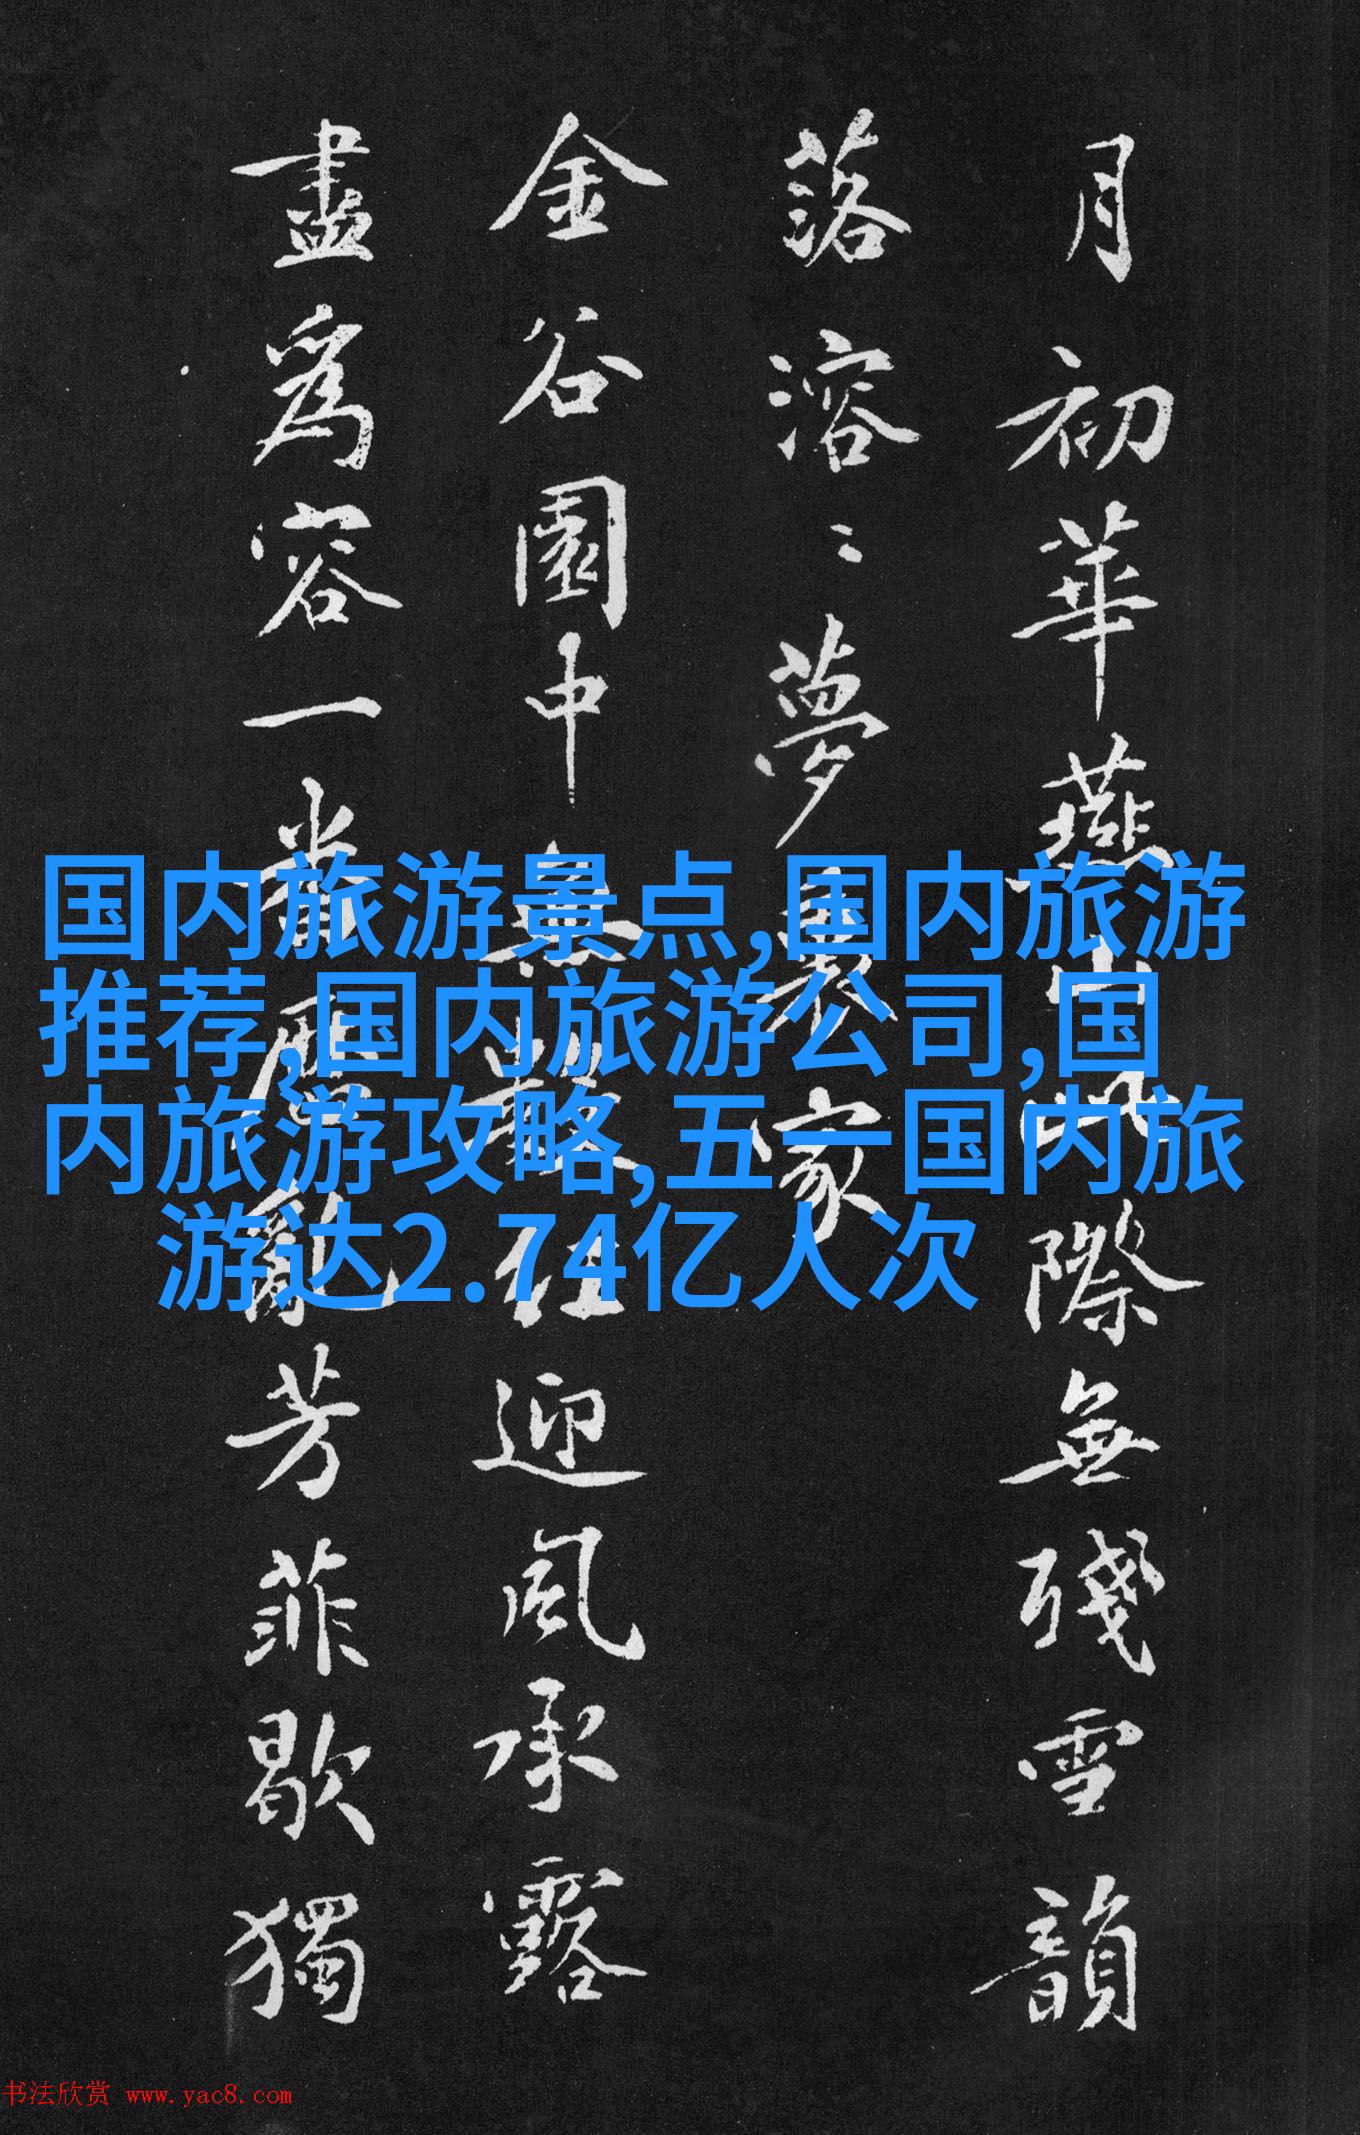 国内旅游景点,国内旅游
推荐,国内旅游公司,国
内旅游攻略,五一国内旅
游达2.74亿人次
月初華燕山際無殘雪韻
落溶〻夢裏家
金谷園中無數迎風承露
盡爲容一番歷亂芳菲歇獨
书法欣赏 www.yac8.com